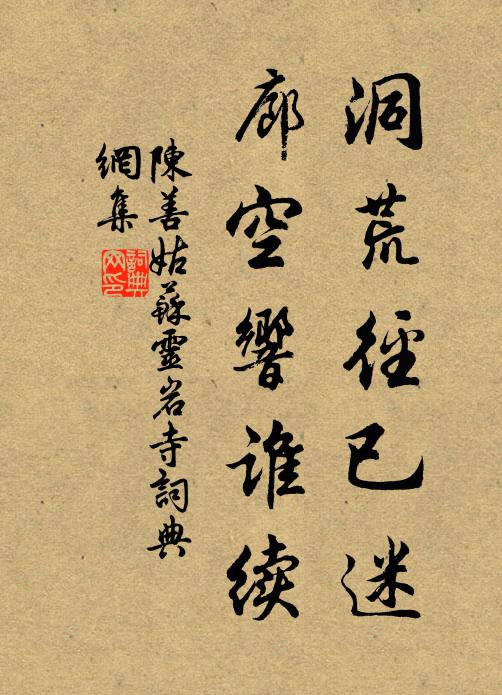 洞荒徑已迷
廊空響谁续
陳善姑蘇靈岩寺詞典
網集
詞典
网印